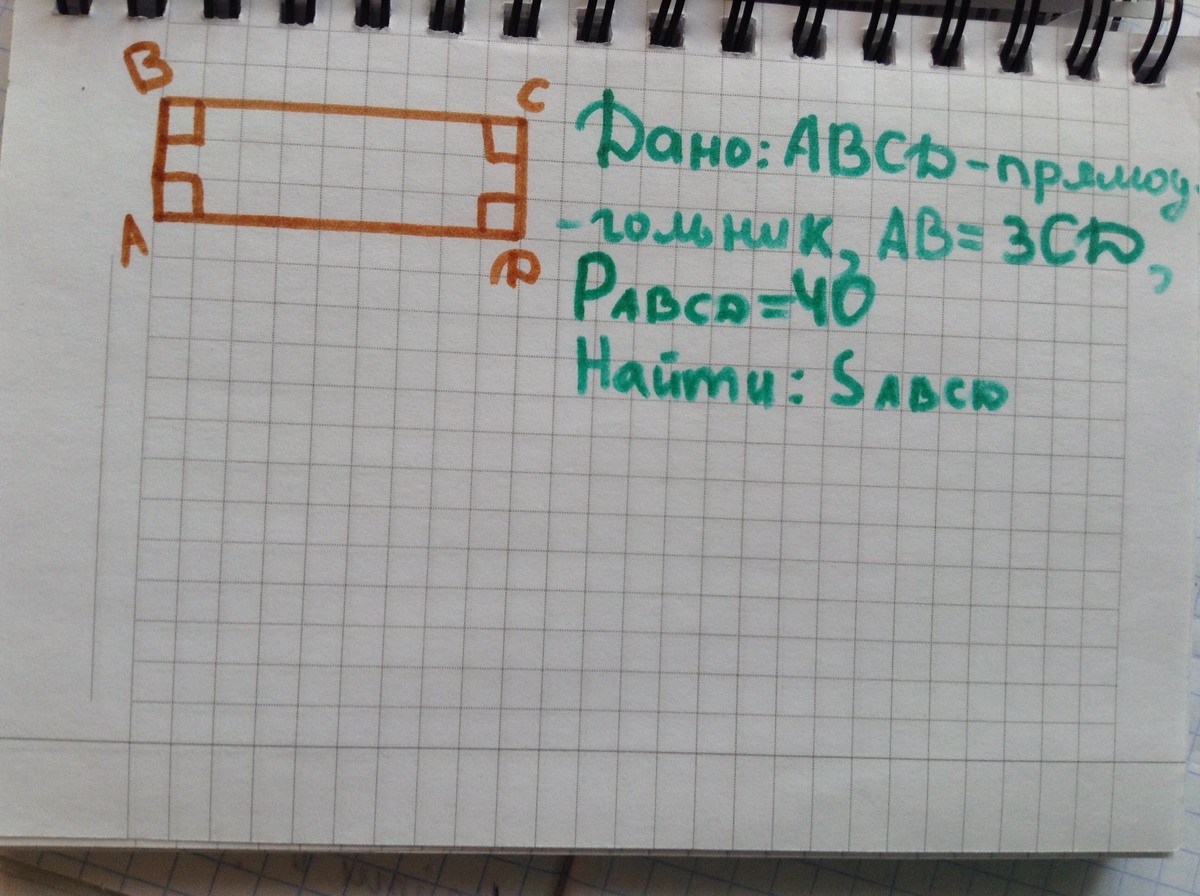 B
C
A
D
Дано: ABCD - прямоу-
- гольник, AB = 3CD,
PABCD = 40
Найти: SABCD